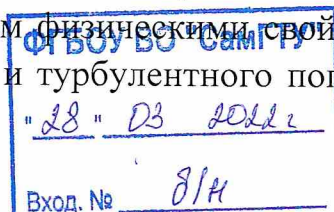 м физическими свой
ФГБОУ ВО "СамГТУ"
и турбулентного пог
"28" 03 2022 г
Вход. № б/н